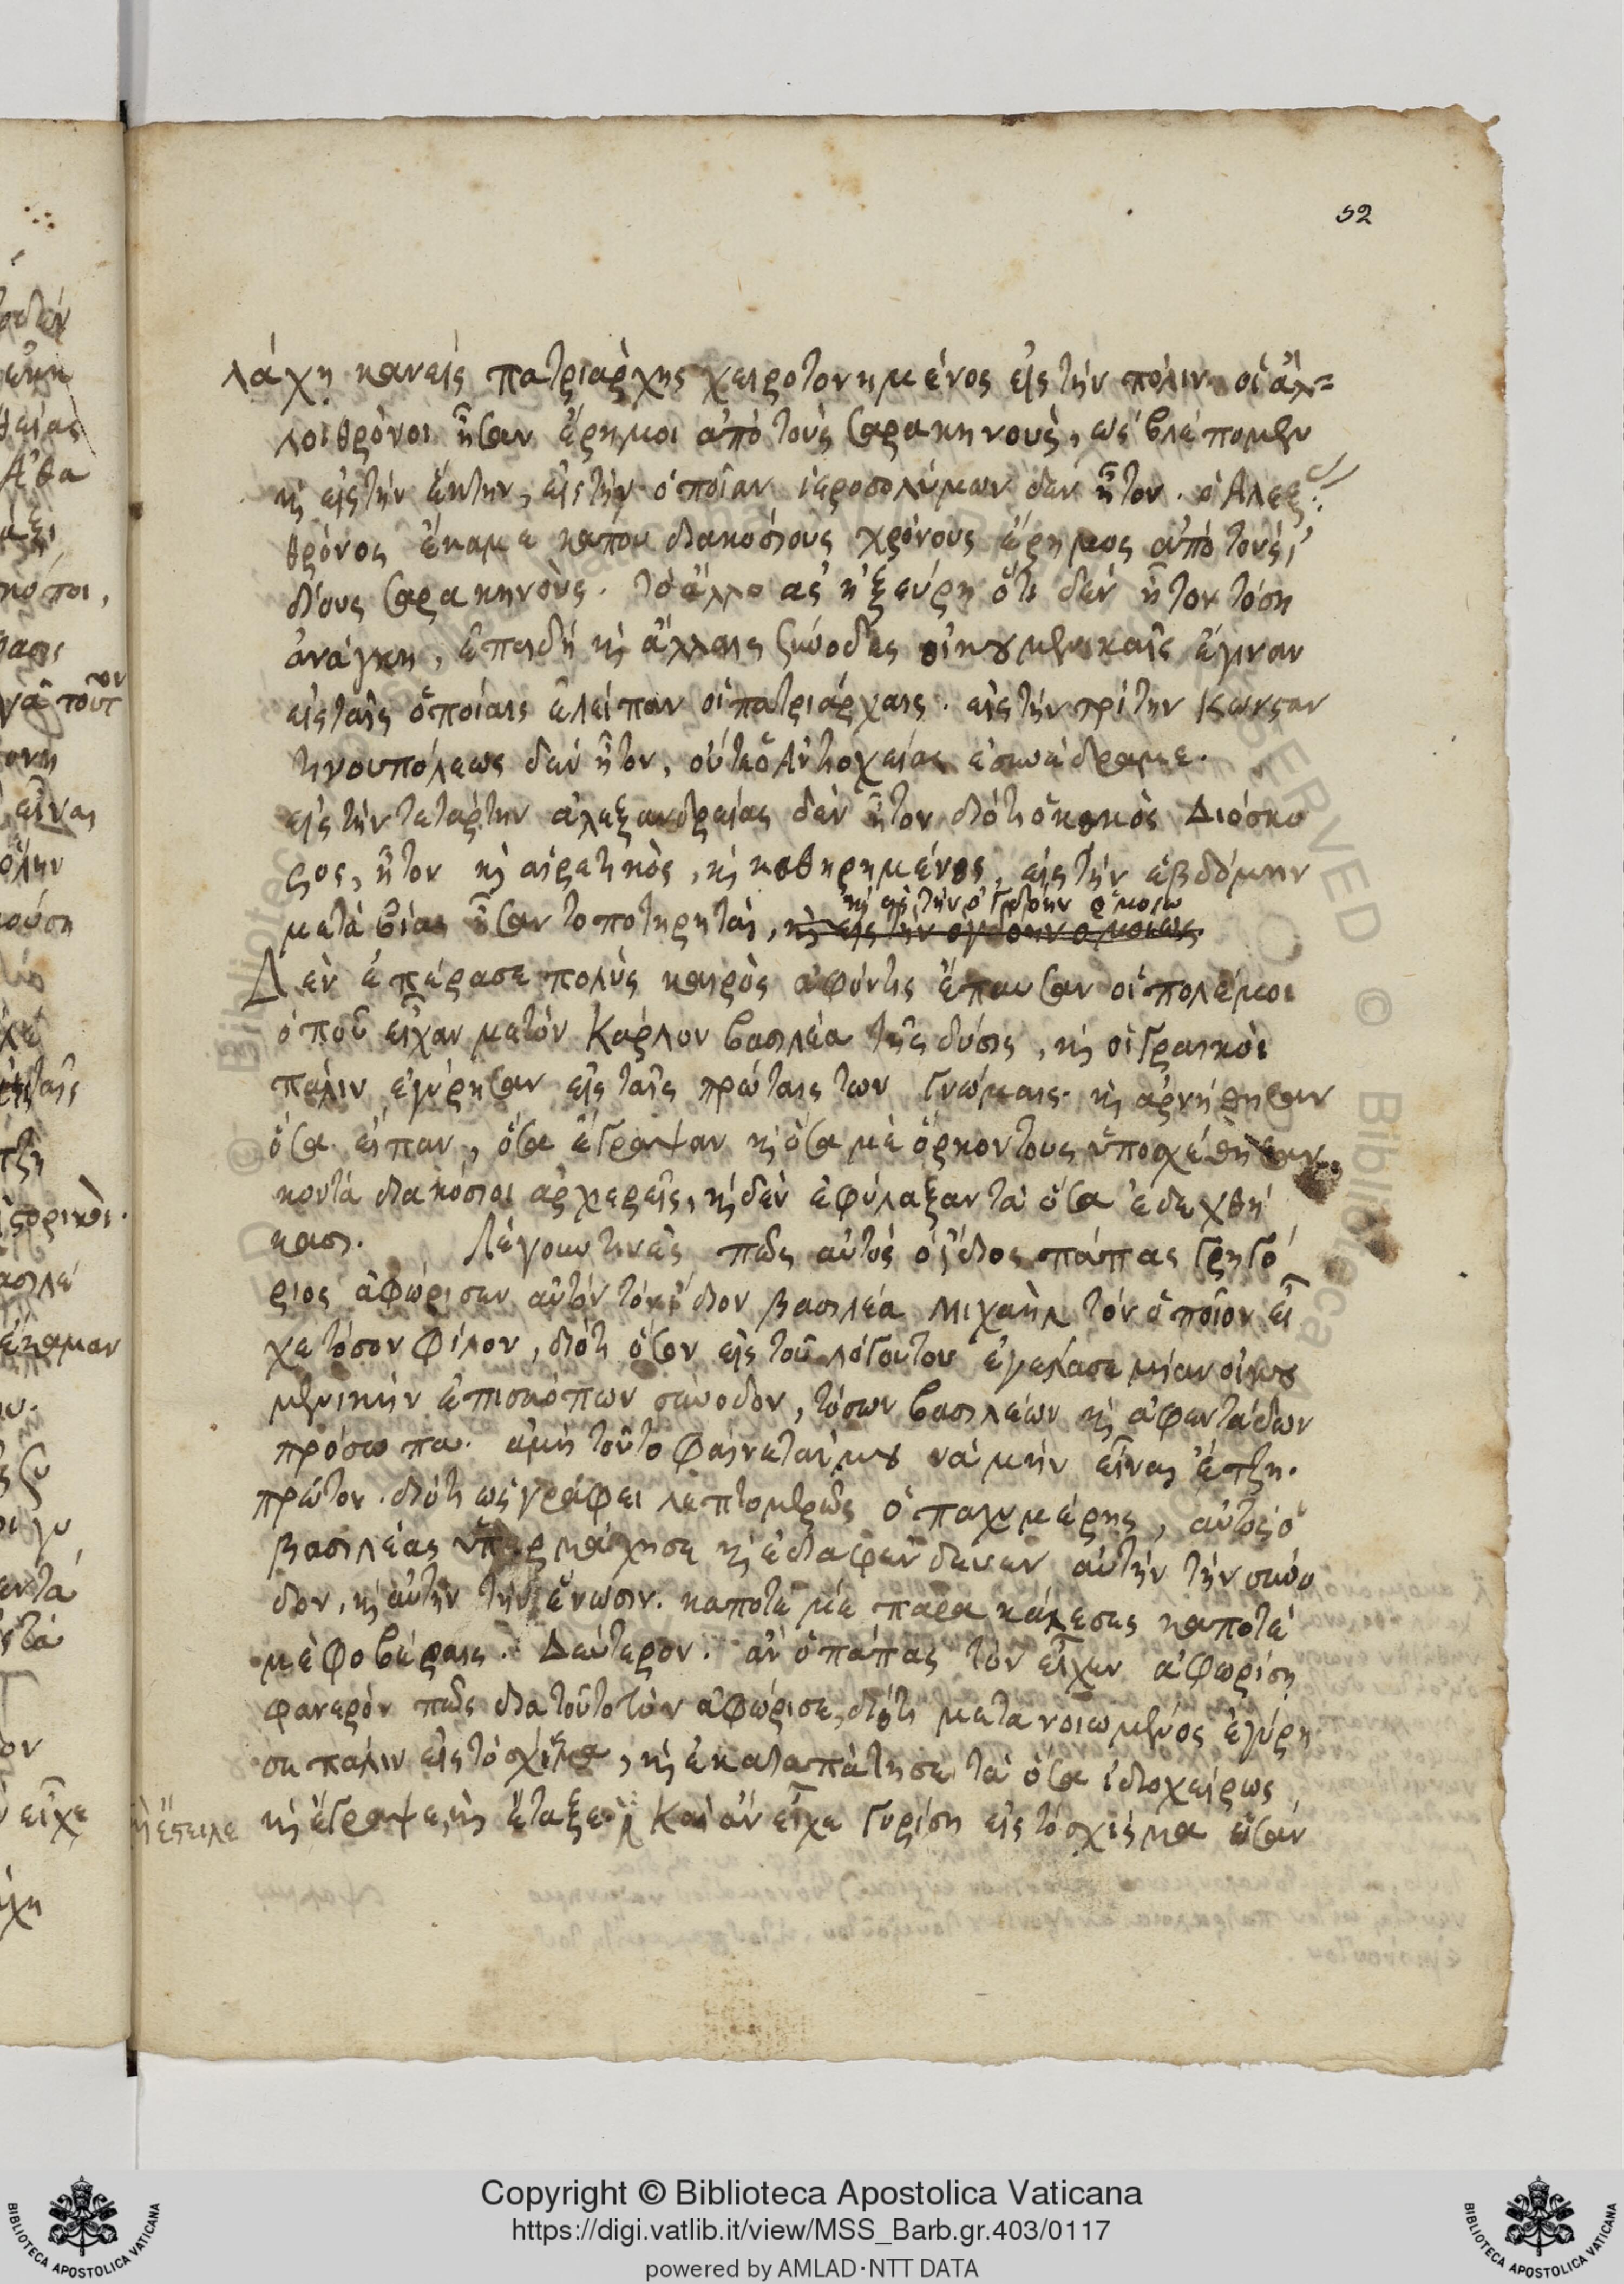 52
λάχη κανείς πατριάρχης χειροτονημένος εἰς τὴν πόλιν οἱ ἄλ=
λοι θρόνοι ἦσαν ἔρημοι ἀπὸ τοὺς σαρακηνοὺς, ὡς βλέπομεν
κὶ εἰς τὴν ἕκτην, εἰς τὴν ὁποίαν ἱεροσολύμων δὲν ἦτον. ὁ Αλεξ:
θρόνος ἔκαμε κάπου διακοσίους χρόνους ἔρημος ἀπὸ τοὺς ἰ
δίους σαρακηνοὺς. τὸ ἄλλο ἂς ἠξεύρη ὅτι δὲν ἦτον τόση
ἀνάγκη, ἐπειδὴ κὶ ἄλλαις σύνοδες οἰκουμενικαῖς ἔγιναν
εἰς ταῖς ὁποίαις ἐλείπαν οἱ πατριάρχαις. εἰς τὴν τρίτην Κωνσταν
τινουπόλεως δὲν ἦτον, οὔτε ὁ Ἀντιοχείας ἐσυνέδραμε.
εἰς τὴν τετάρτην ἀλεξανδρείας δὲν ἦτον διότι ὁ κακὸς Διόσκο
ρος, ἦτον κὶ αἱρετικὸς, κὶ καθηρημένος, εἰς τὴν ἑβδόμην
κὶ εἰς τὴν ὀγδόην ὁμοίω
μετὰ βίας ἦσαν τοποτηρηταί, κὶ εἰς τὴν ὀγδόην ὁμοίως
Δὲν ἐπέρασε πολὺς καιρὸς ἀφόντις ἔπαυσαν οἱ πολέμοι
ὁποῦ εἶχαν μετὸν Κάρλον βασιλέα τῆς δύσις, κὶ οἱ Γραικοὶ
πάλιν ἐγύρησαν εἰς ταῖς πρώταις των γνώμαις. κὶ ἀρνήθησαν
ὅσα εἶπαν, ὅσα ἔγραψαν κὶ ὅσα μὲ ὅρκον τους ὑποσχέθησαν
κοντὰ διακόσιοι ἀρχιερεῖς, κὶ δὲν ἐφύλαξαν τὰ ὅσα ἐδεχθή
κασι. Λέγουν τινὲς πῶς αὐτὸς ὁ ἴδιος πάπας Γρηγό
ριος ἀφώρισεν αὐτὸν τὸν ἴδιον βασιλέα Μιχαὴλ τὸν ὁποῖον εἶ
χε τόσον φίλον, διότι ὅσον εἰς τοῦ λόγου του ἐγέλασε μίαν οἰκου
μενικὴν ἐπισκόπων σύνοδον, τόσων βασιλέων κὶ ἀφεντάδων
πρόσωπα. ἀμὴ τοῦτο φαίνεταί μου νὰ μὴν εἶναι ἔτζη.
πρῶτον. διότι ὡς γράφει λεπτομερῶς ὁ παχυμέρης, αὐτὸς ὁ
βασιλέας ὑπερμάχησε κὶ ἐδιαφένδευεν αὐτὴν τὴν σύνο
δον, κὶ αὐτὴν τὴν ἕνωσιν. καποτὲ μὲ παρακάλεσες καποτὲ
μὲ φοβέραις. Δεύτερον. ἂν ὁ πάπας τὸν εἶχεν ἀφωρίση
φανερὸν πῶς διὰ τοῦτο τὸν ἀφώρισε, διότι μετανοιωμένος ἐγύρη
σε πάλιν εἰς τὸ σχίσμα, κὶ ἐκαταπάτησε τὰ ὅσα ἰδιοχείρως
κὶ ἔγραψε, κὶ ἔταξε Καὶ ἂν εἶχε γυρίση εἰς τὸ σχίσμα ὡσὰν
κὶ ἔστειλε
Copyright © Biblioteca Apostolica Vaticana
https://digi.vatlib.it/view/MSS_Barb.gr.403/0117
powered by AMLAD·NTT DATA